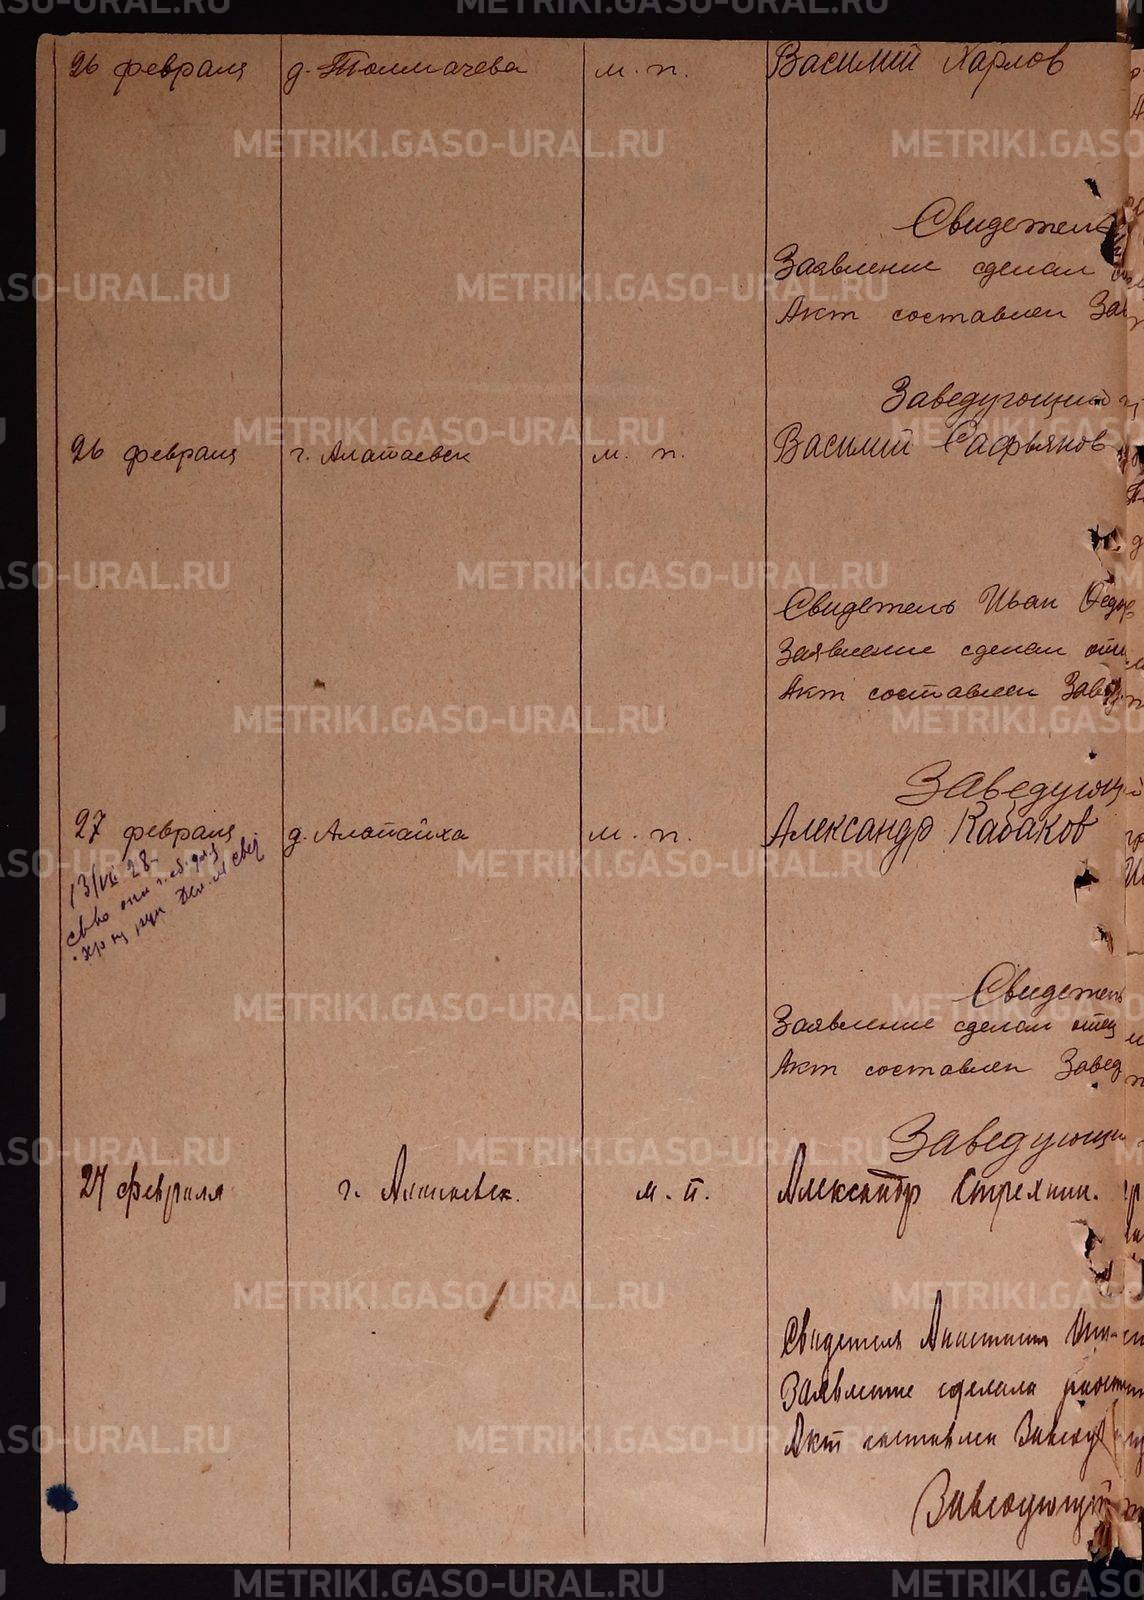 26 февраля д. Толмачева м. п. Василий Харлов
Свидетель
Заявление сделал
Акт составлен Зав
Заведующий
26 февраля г. Алапаевск м. п. Василий Сафьянов
Свидетель Иван Федор
Заявление сделал отец
Акт составлен Завед
Заведующ
27 февраля д. Алапаиха м. п. Александр Кабаков
13/VII 28
Свидетель
Заявление сделал отец
Акт составлен Завед
Заведующи
27 февраля г. Алапаевск. м. п. Александр Стрехнин.
Свидетель Анастасия
Заявление сделала
Акт составлен Заведу
Заведующий
METRIKI.GASO-URAL.RU